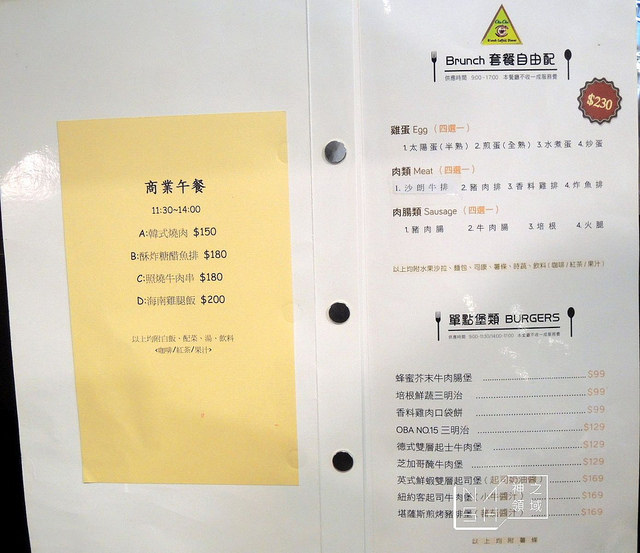 商業午餐
11:30~14:00
A:韓式燒肉 $150
B:酥炸糖醋魚排 $180
C:照燒牛肉串 $180
D:海南雞腿飯 $200
以上均附白飯、配菜、湯、飲料
<咖啡/紅茶/果汁>
Brunch 套餐自由配
供應時間 9:00~17:00 本餐廳不收一成服務費
$230
雞蛋 Egg (四選一)
1.太陽蛋(半熟) 2.煎蛋(全熟) 3.水煮蛋 4.炒蛋
肉類 Meat (四選一)
1.沙朗牛排 2.豬肉排 3.香料雞排 4.炸魚排
肉腸類 Sausage (四選一)
1.豬肉腸 2.牛肉腸 3.培根 4.火腿
以上均附水果沙拉、麵包、司康、薯條、時蔬、飲料(咖啡/紅茶/果汁)
單點堡類 BURGERS
蜂蜜芥末牛肉腸堡 $99
培根鮮蔬三明治 $99
香料雞肉口袋餅 $99
OBA NO.15 三明治 $129
德式雙層起士牛肉堡 $129
芝加哥醃牛肉堡 $129
英式鮮蝦雙層起司堡(起司奶油醬) $169
紐約客起司牛肉堡(小牛醬汁) $169
堪薩斯煎烤豬排堡 $169
以上均附薯條
神之領域